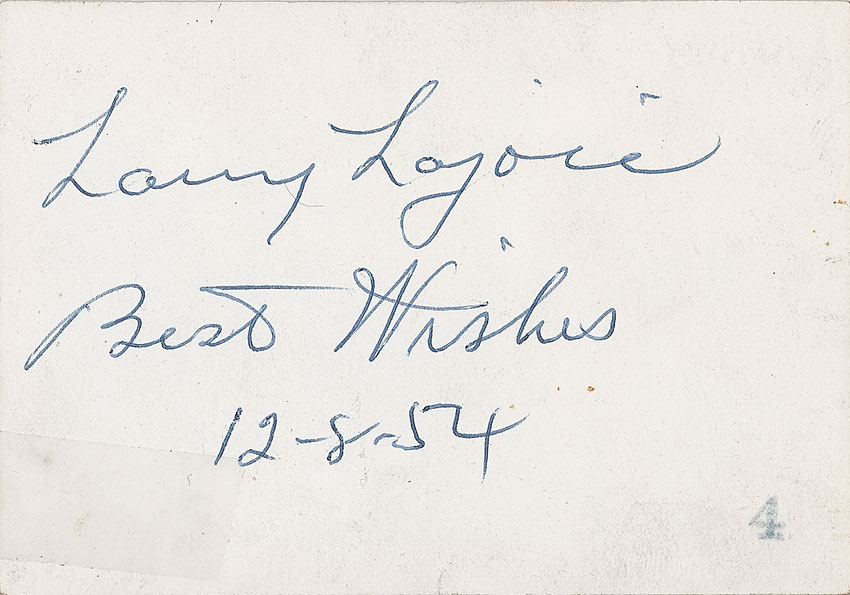 Larry Lajoie
Best Wishes
12-8-54
4